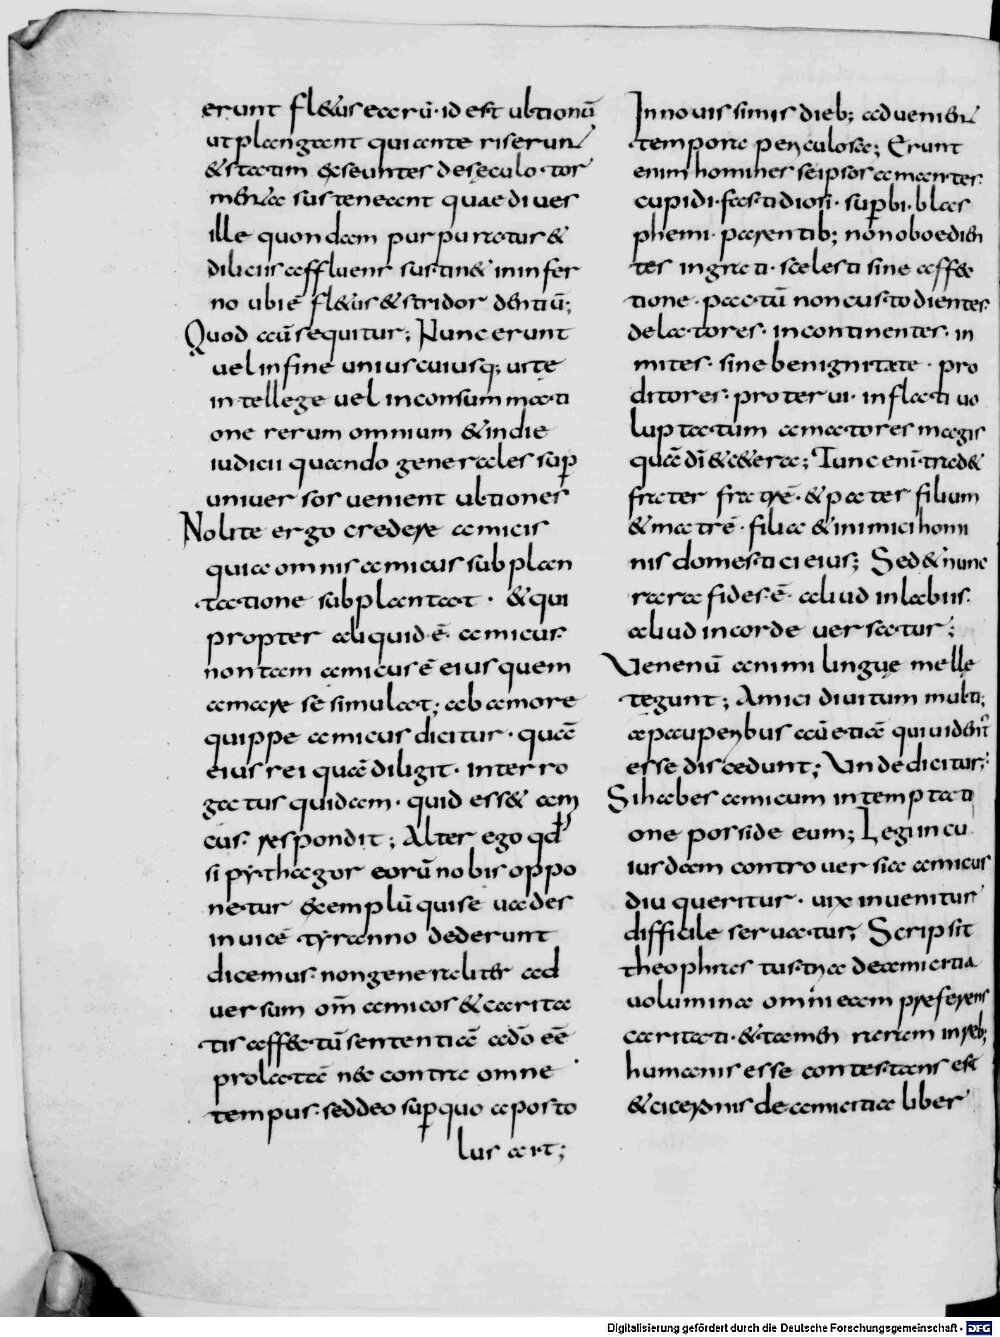 erunt fl&us earū· id est ultionū
ut plangant qui ante riserunt
& statim exeuntes de seculo· tor
menta susteneant quae diues
ille quondam purpuratur &
diliciis affluens sustin& in infer
no ubi ē fl&us & stridor dentiū;
Quod aūt sequitur; Nunc erunt
uel in fine uniuscuiusq; uitę
intellege uel in consummati
one rerum omnium & in die
iudicii quando generales sup
uniuersos uenient ultiones
Nolite ergo credere amicis
quia omnis amicus subplan
tatione subplantat· & qui
propter aliquid ē amicus·
non tam amicus ē eius quem
amare se simulat; ab amore
quippe amicus dicitur· quā
eius rei quā diligit· interro
gatus quidam· quid ess& ami
cus· respondit; Alter ego qd
si pythagoreorū nobis oppo
netur exemplū qui se uades
inuicē tyranno dederunt
dicemus· non generaliter ad
uersum om̄ amicos & carita
tis affectū sententiā ado eē
prolatā nec contra omne
tempus· sed deo sup quo aposto
lus ait;
In nouissimis dieb; aduenient
tempora periculosa; Erunt
enim homines seipsos amantes·
cupidi· fastidiosi· supbi· blas
phemi· parentib; nōn oboedien
tes ingrati· scelesti sine affec
tione· pactū non custodientes·
delatores· incontinentes· in
mites· sine benignitate· pro
ditores· proterui· inflati uo
luptatum amatores magis
quā dī & c&era; Tunc enī trad&
frater fratrē· & pater filium
& matrē· filia & inimici homi
nis domestici eius; Sed & nunc
rara fides ē aliud in labiis·
aliud in corde uersatur;
Venenū animi linguę melle
tegunt; Amici diuitum multi;
a pauperibus aūt etiā qui uident
esse discedunt; Unde dicitur;
Si habes amicum in temptati
one posside eum; Legi in cu
iusdam controuersia amicus
diu queritur· uix inuenitur
difficile seruatur; Scripsit
theophrastus tria de amicitia
uolumina omni eam preferens
caritati· & tamen raram in reb;
humanis esse contestans est
& ciceronis de amicitia liber